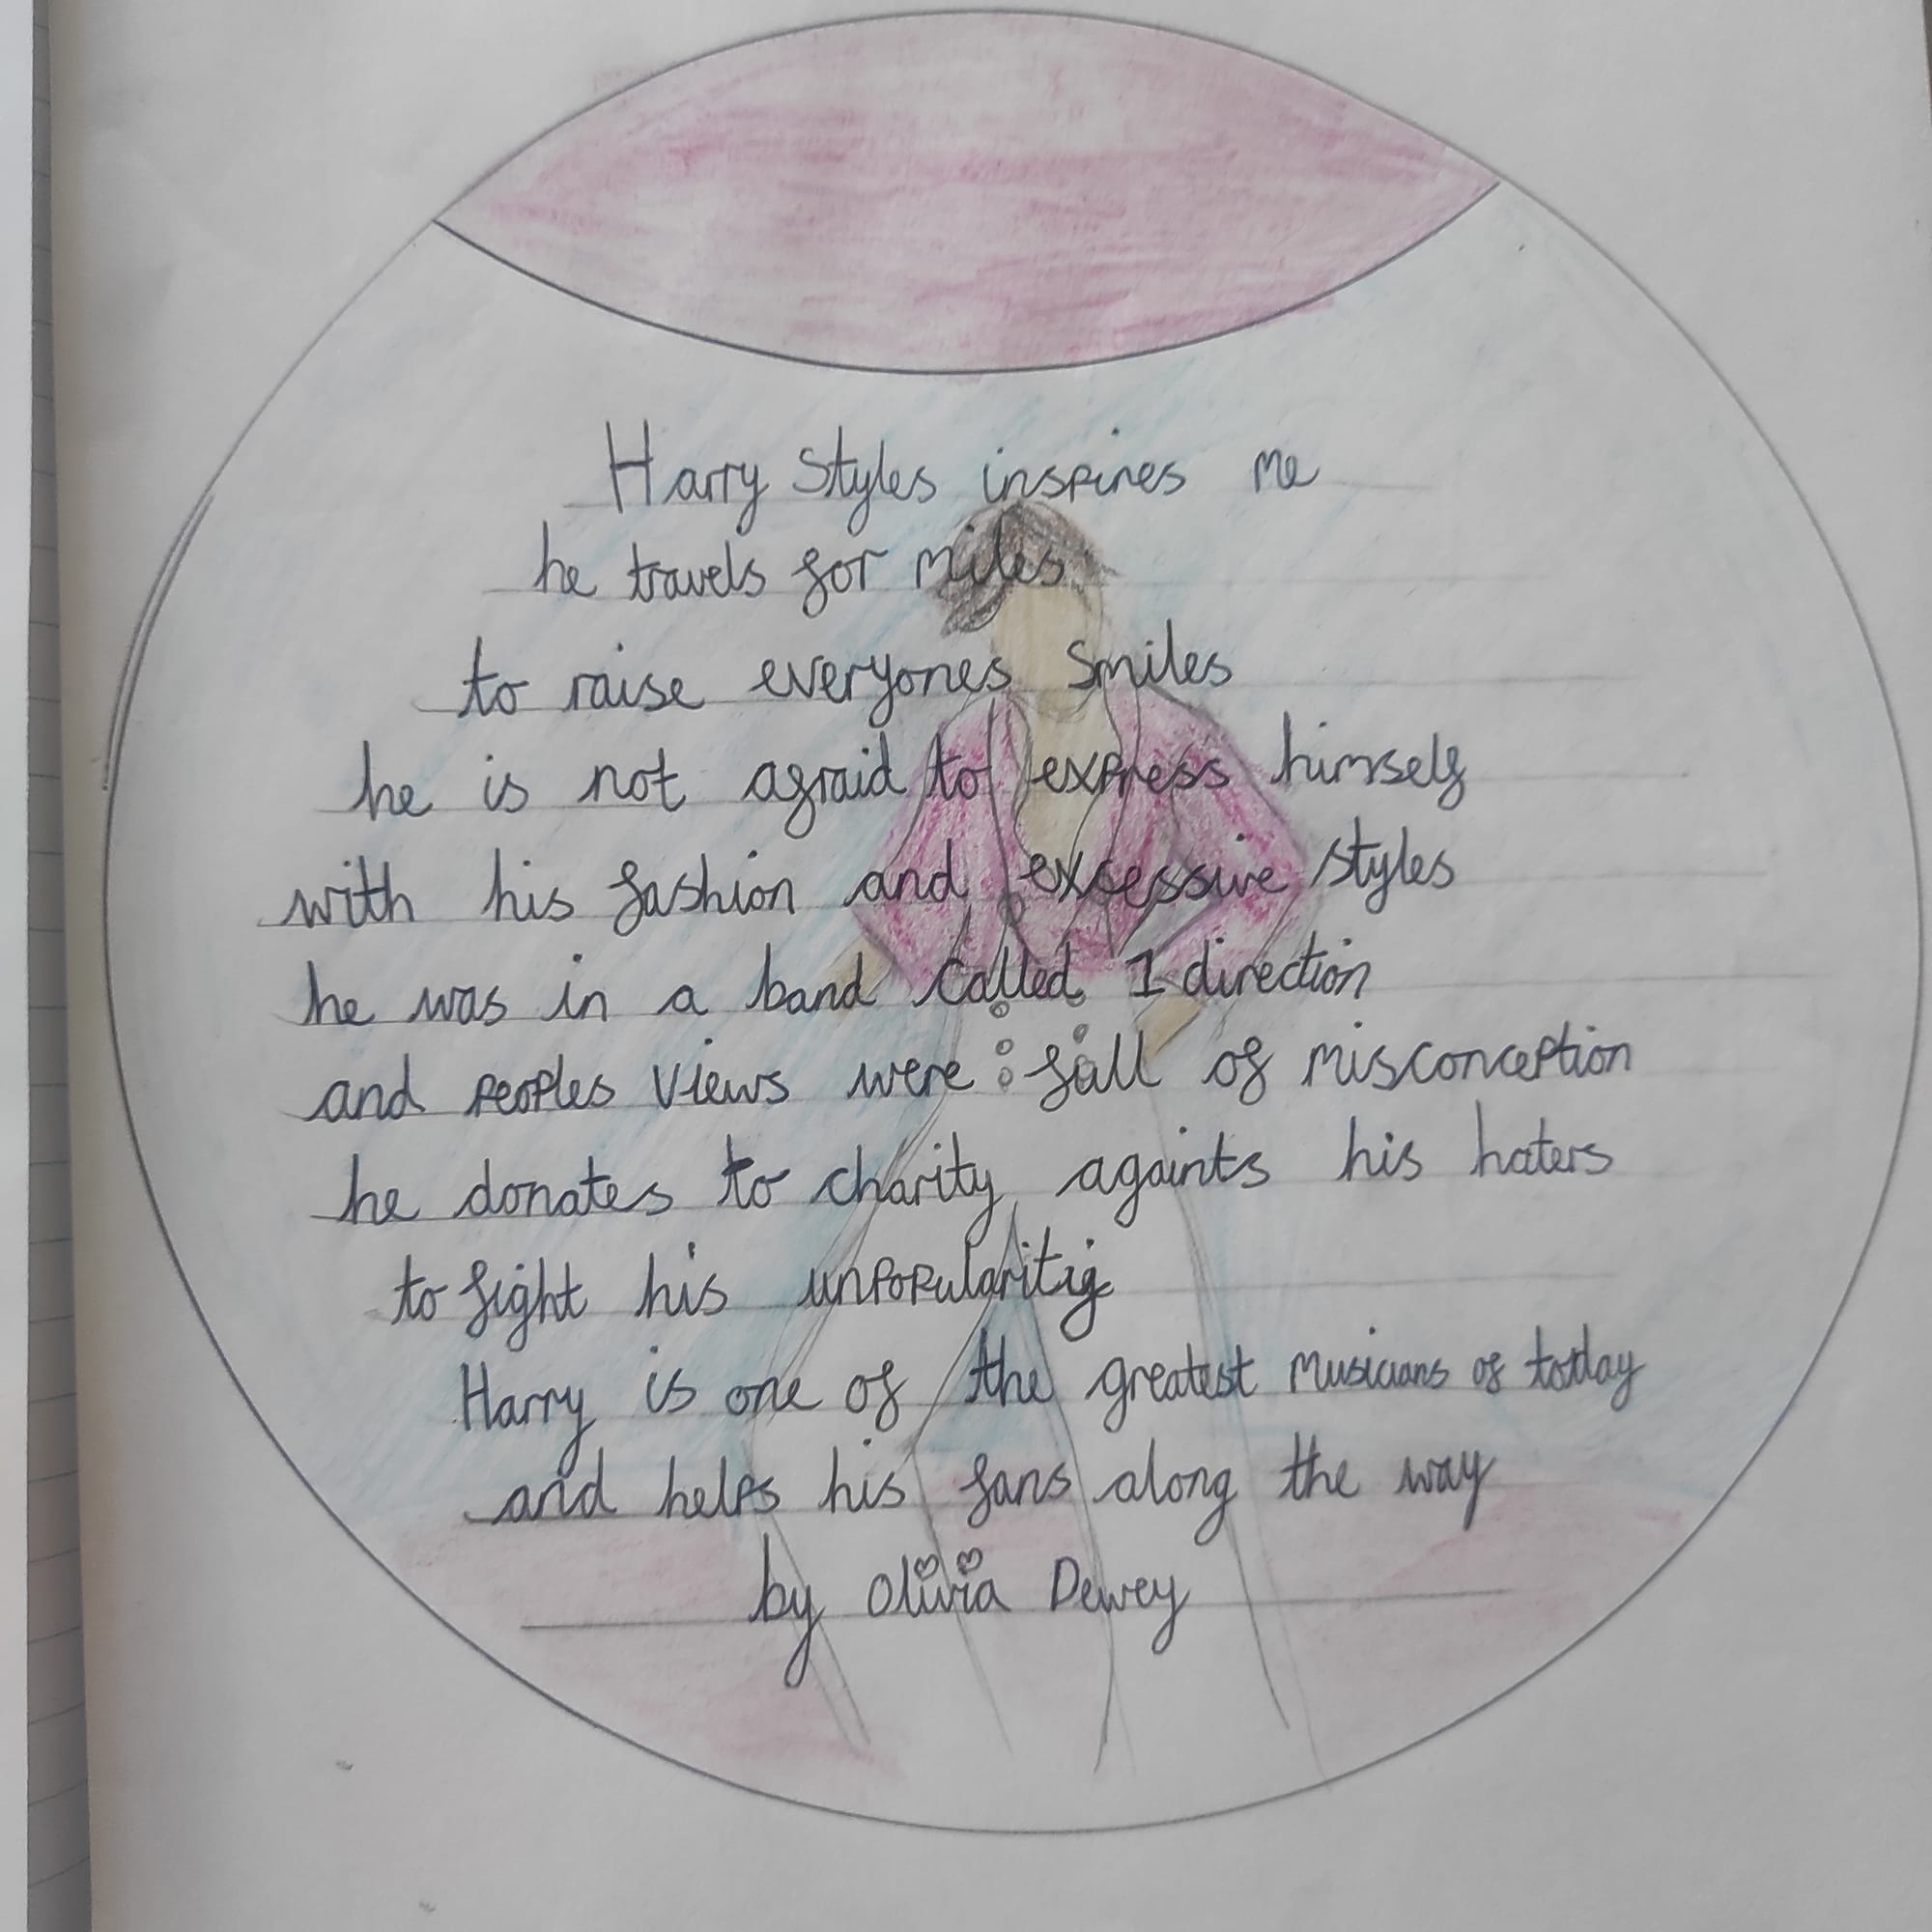 Harry Styles inspires me
he travels for miles
to raise everyones smiles
he is not afraid to express himself
with his fashion and excessive styles
he was in a band called 1 direction
and peoples views were full of misconception
he donates to charity againts his haters
to fight his unpopularitiy
Harry is one of the greatest musicians of today
and helps his fans along the way
by Olivia Dewey